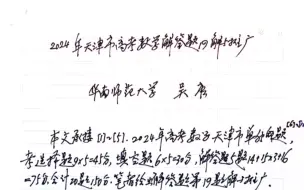 2024年天津市高考数学解答题19解与推广
华南师范大学 吴康
本文承接[1]-[5].2024年高考数学天津市单独命题,
考选择题9×5=45分,填空题6×5=30分,解答题5题14+15×3+16
=75分,合计20题150分.笔者给出解答题第19题解与推广